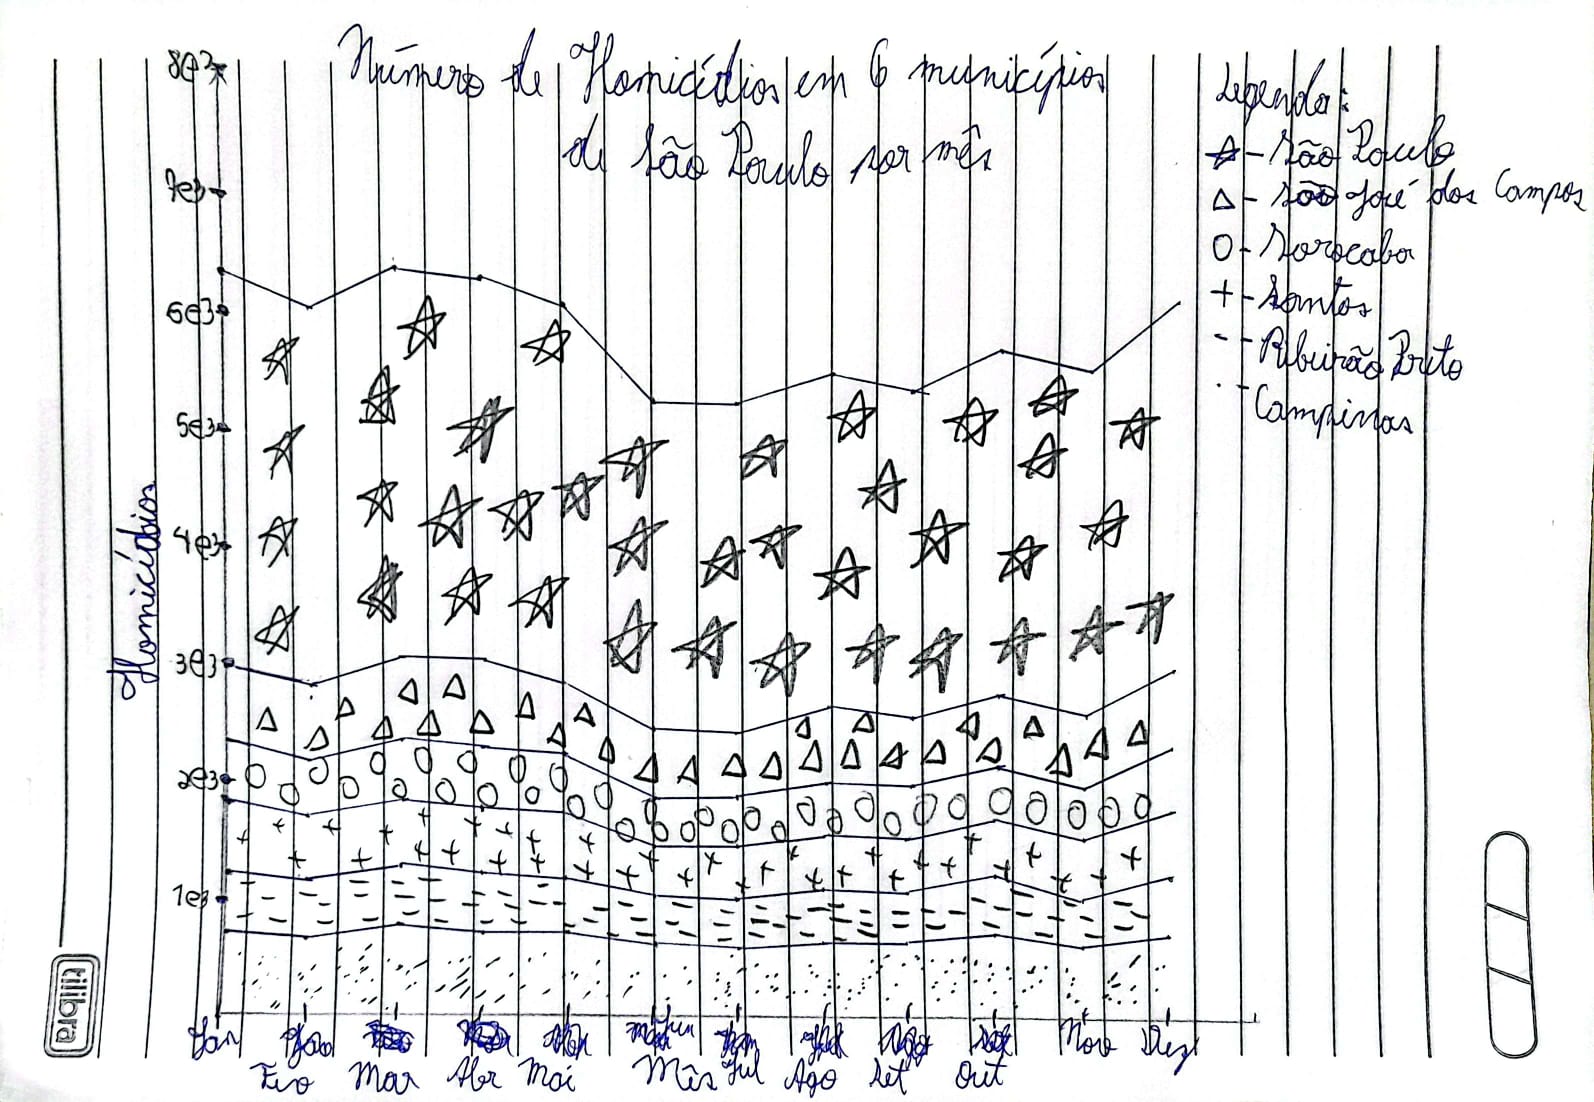 Número de Homicídios em 6 municípios
de São Paulo por mês
Legenda:
- São Paulo
- São José dos Campos
- Sorocaba
- Santos
- Ribeirão Preto
- Campinas
8e3
7e3
6e3
5e3
4e3
3e3
2e3
1e3
Homicídios
Jan Nov Dez
Fev Mar Abr Mai Jun Jul Ago Set Out
Mês
tilibra